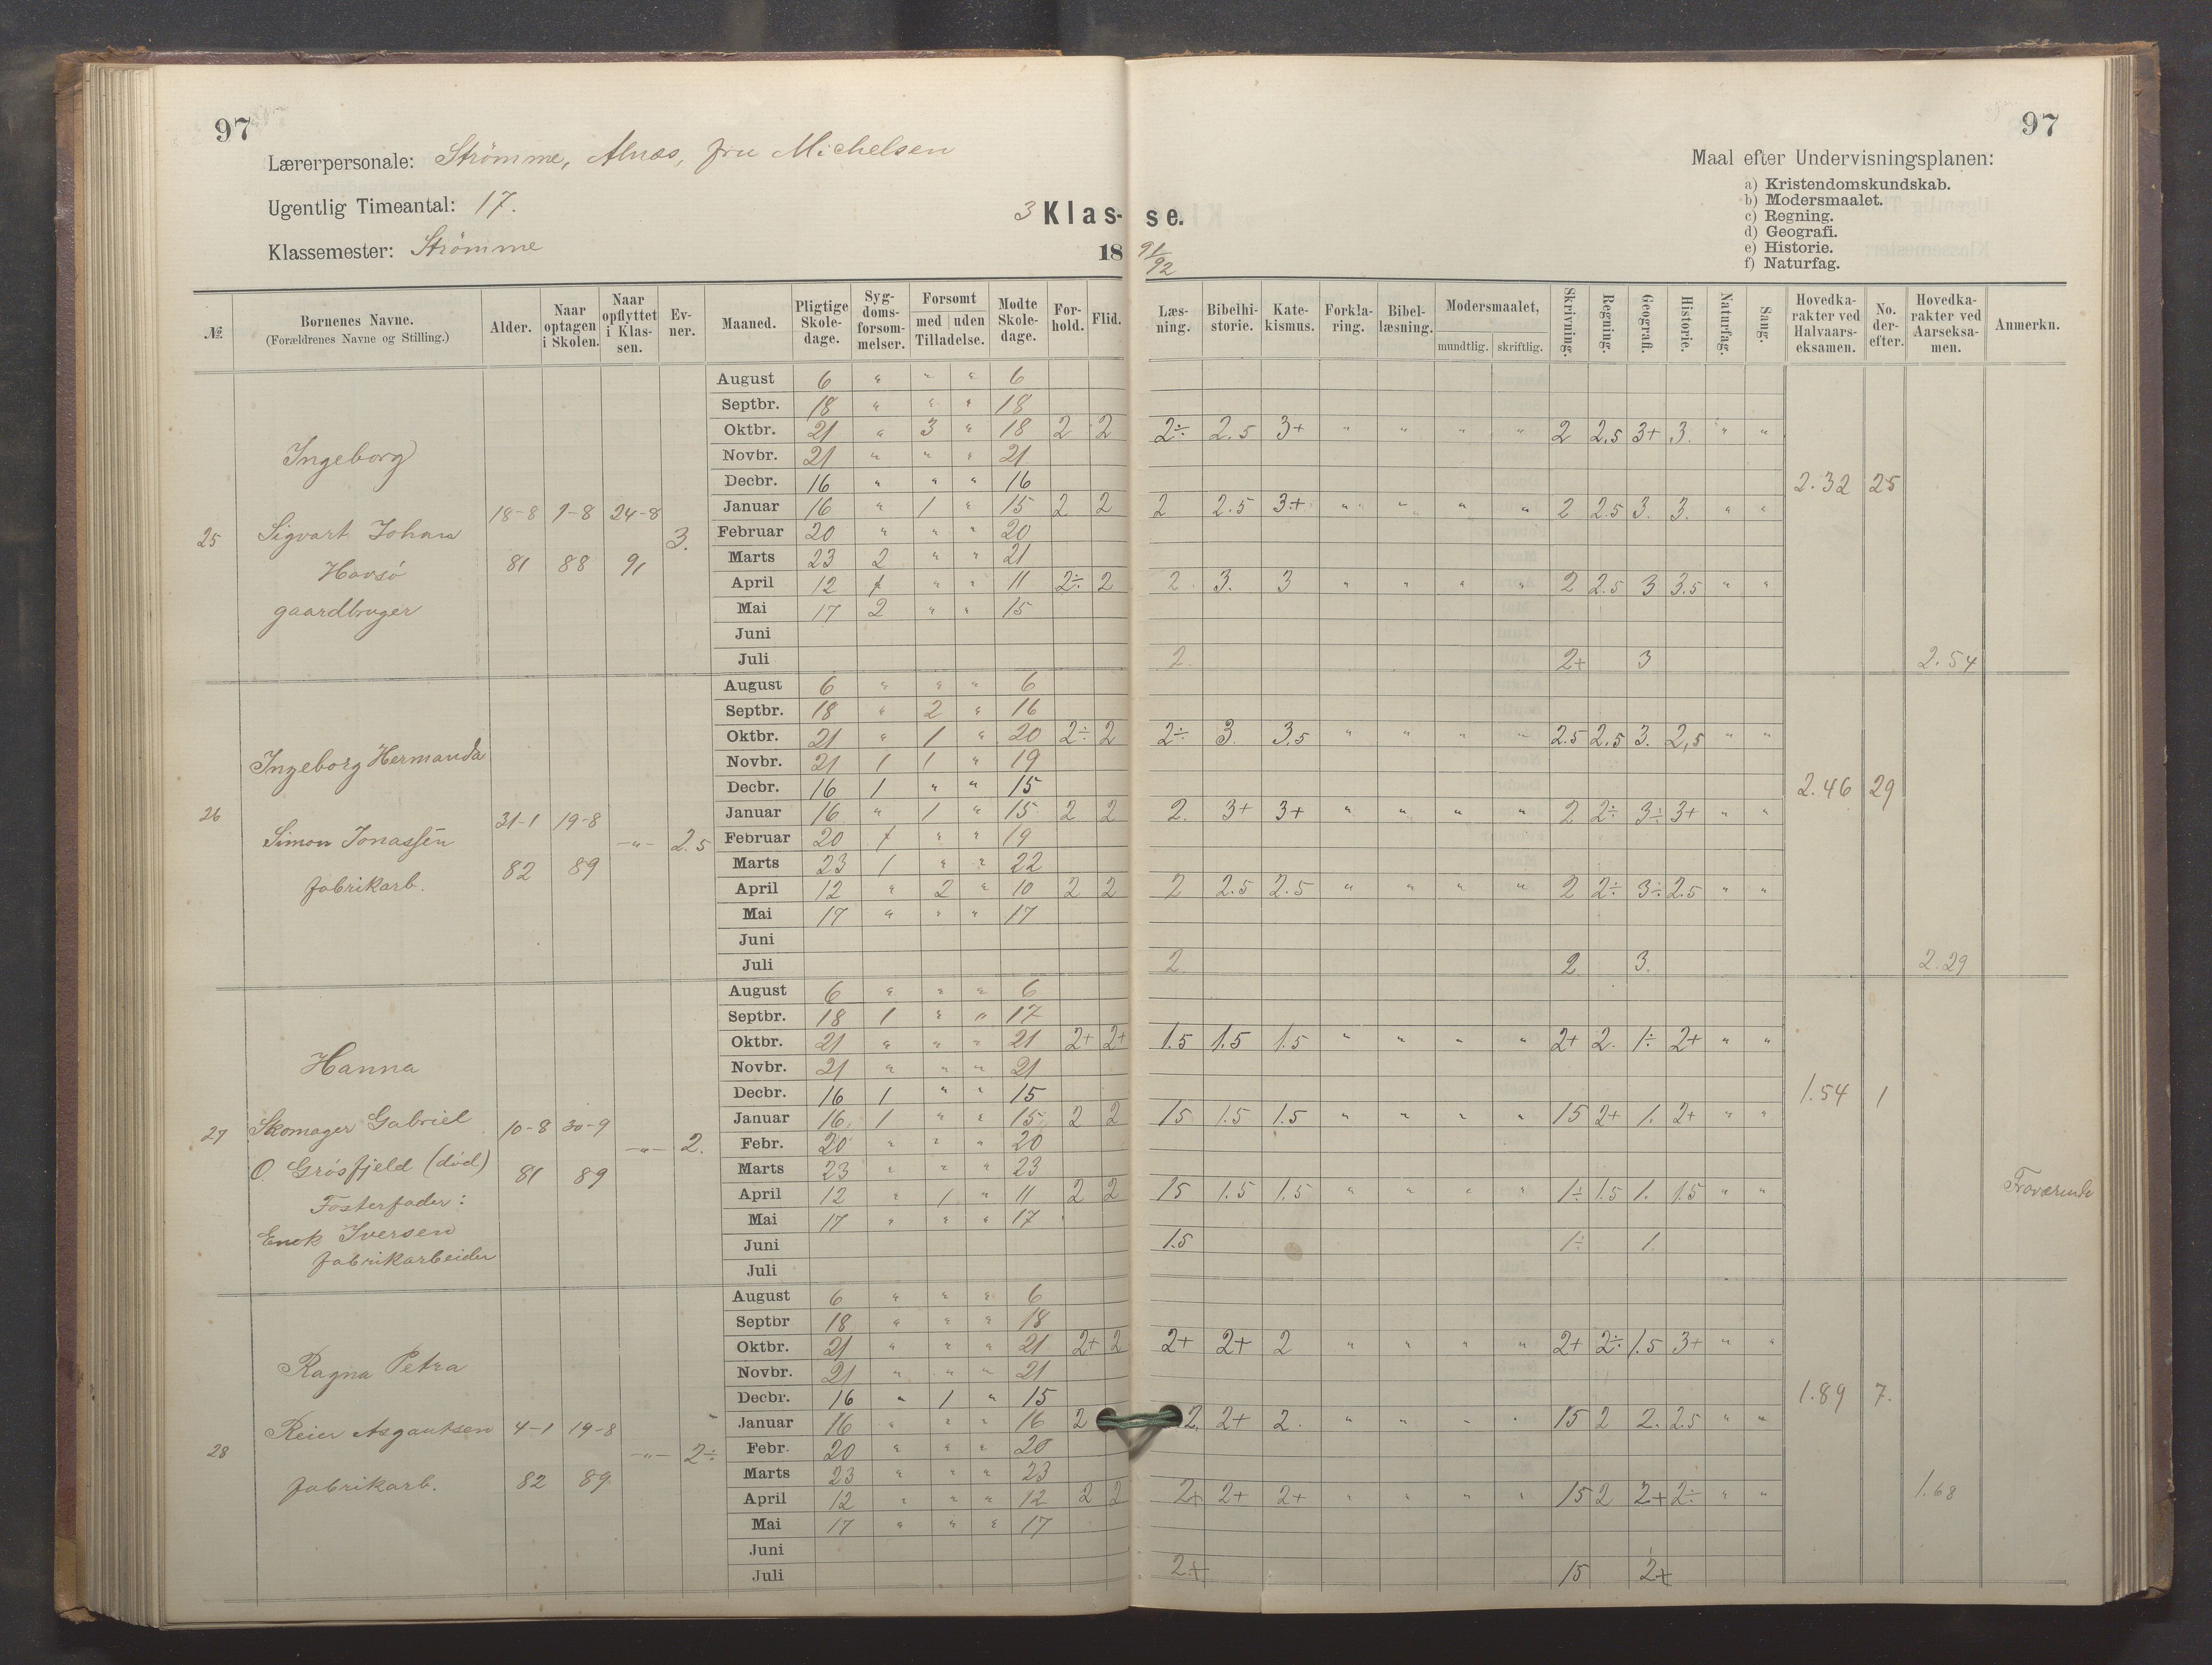 97
97
Lærerpersonale: Strömme, Alnæs, fru Michelsen
Ugentlig Timeantal: 17.
Klassemester: Strömme
3 Klas- se.
18 91/92
Maal efter Undervisningsplanen:
a) Kristendomskundskab.
b) Modersmaalet.
c) Regning.
d) Geografi.
e) Historie.
f) Naturfag.
№ | Børnenes Navne. (Forældrenes Navne og Stilling.) | Alder. | Naar optagen i Skolen. | Naar opflyttet i Klassen. | Evner. | Maaned. | Pligtige Skoledage. | Sygdomsforsømmelser. | Forsømt med | uden Tilladelse. | Mødte Skoledage. | Forhold. | Flid. | Læsning. | Bibelhistorie. | Katekismus. | Forklaring. | Bibellæsning. | Modersmaalet, mundtlig. | skriftlig. | Skrivning. | Regning. | Geografi. | Historie. | Naturfag. | Sang. | Hovedkarakter ved Halvaarseksamen. | No. derefter. | Hovedkarakter ved Aarseksamen. | Anmerkn.
25
Ingeborg
Sigvart Johan
Havsö
gaardbruger
18-8 81
1-8 88
24-8 91
3.
August 6 " " " 6
Septbr. 18 " " " 18
Oktbr. 21 " 3 " 18 2 2 2÷ 2.5 3+ " " " " 2 2.5 3+ 3. " "
Novbr. 21 " " " 21
Decbr. 16 " " " 16
2.32 25
Januar 16 " 1 " 15 2 2 2 2.5 3+ " " " " 2 2.5 3. 3. " "
Februar 20 " " " 20
Marts 23 2 " " 21
April 12 1 " " 11 2÷ 2 2 3. 3 " " " " 2 2.5 3 3.5 " "
Mai 17 2 " " 15
Juni
Juli 2 2+ 3 2.54
26
Ingeborg Hermanda
Simon Jonassen
fabrikarb.
31-1 82
19-8 89
-"-
2.5
August 6 " " " 6
Septbr. 18 " 2 " 16
Oktbr. 21 " 1 " 20 2÷ 2 2÷ 3. 3.5 " " " " 2.5 2.5 3. 2,5 " "
Novbr. 21 1 1 " 19
Decbr. 16 1 " " 15
2.46 29
Januar 16 " 1 " 15 2 2 2. 3+ 3+ " " " " 2 2÷ 3÷ 3+ " "
Februar 20 1 " " 19
Marts 23 1 " " 22
April 12 " 2 " 10 2 2 2 2.5 2.5 " " " " 2 2÷ 3÷ 2.5 " "
Mai 17 " " " 17
Juni
Juli 2 2 3. 2.29
27
Hanna
Skomager Gabriel
O. Grösfjeld (död)
Fosterfader:
Enok Iversen
fabrikarbeider
10-8 81
30-9 89
-"-
2.
August 6 " " " 6
Septbr. 18 1 " " 17
Oktbr. 21 " " " 21 2+ 2+ 1.5 1.5 1.5 " " " " 2+ 2. 1÷ 2+ " "
Novbr. 21 " " " 21
Decbr. 16 1 " " 15
1.54 1
Januar 16 1 " " 15 2 2 15 1.5 1.5 " " " " 15 2+ 1. 2+ " "
Febr. 20 " " " 20
Marts 23 " " " 23
April 12 " 1 " 11 2 2 15 1.5 1.5 " " " " 1÷ 1.5 1. 1.5 " "
Fraværende
Mai 17 " " " 17
Juni 1.5 1÷ 1.
Juli
28
Ragna Petra
Reier Asgautsen
fabrikarb.
4-1 82
19-8 89
-"-
2÷
August 6 " " " 6
Septbr 18 " " " 18
Oktbr. 21 " " " 21 2+ 2 2+ 2+ 2 " " " " 2+ 2÷ 1.5 3+ " "
Novbr. 21 " " " 21
Decbr. 16 " 1 " 15
1.89 7.
Januar 16 " " " 16 2 2. 2+ 2. " " " " 15 2 2. 2.5 " "
Febr. 20 " " " 20
Marts 23 " " " 23
April 12 " " " 12 2 2 2+ 2+ 2+ " " " " 15 2 2+ 2÷ " "
1.68
Mai 17 " " " 17
Juni
Juli 2+ 15 2+